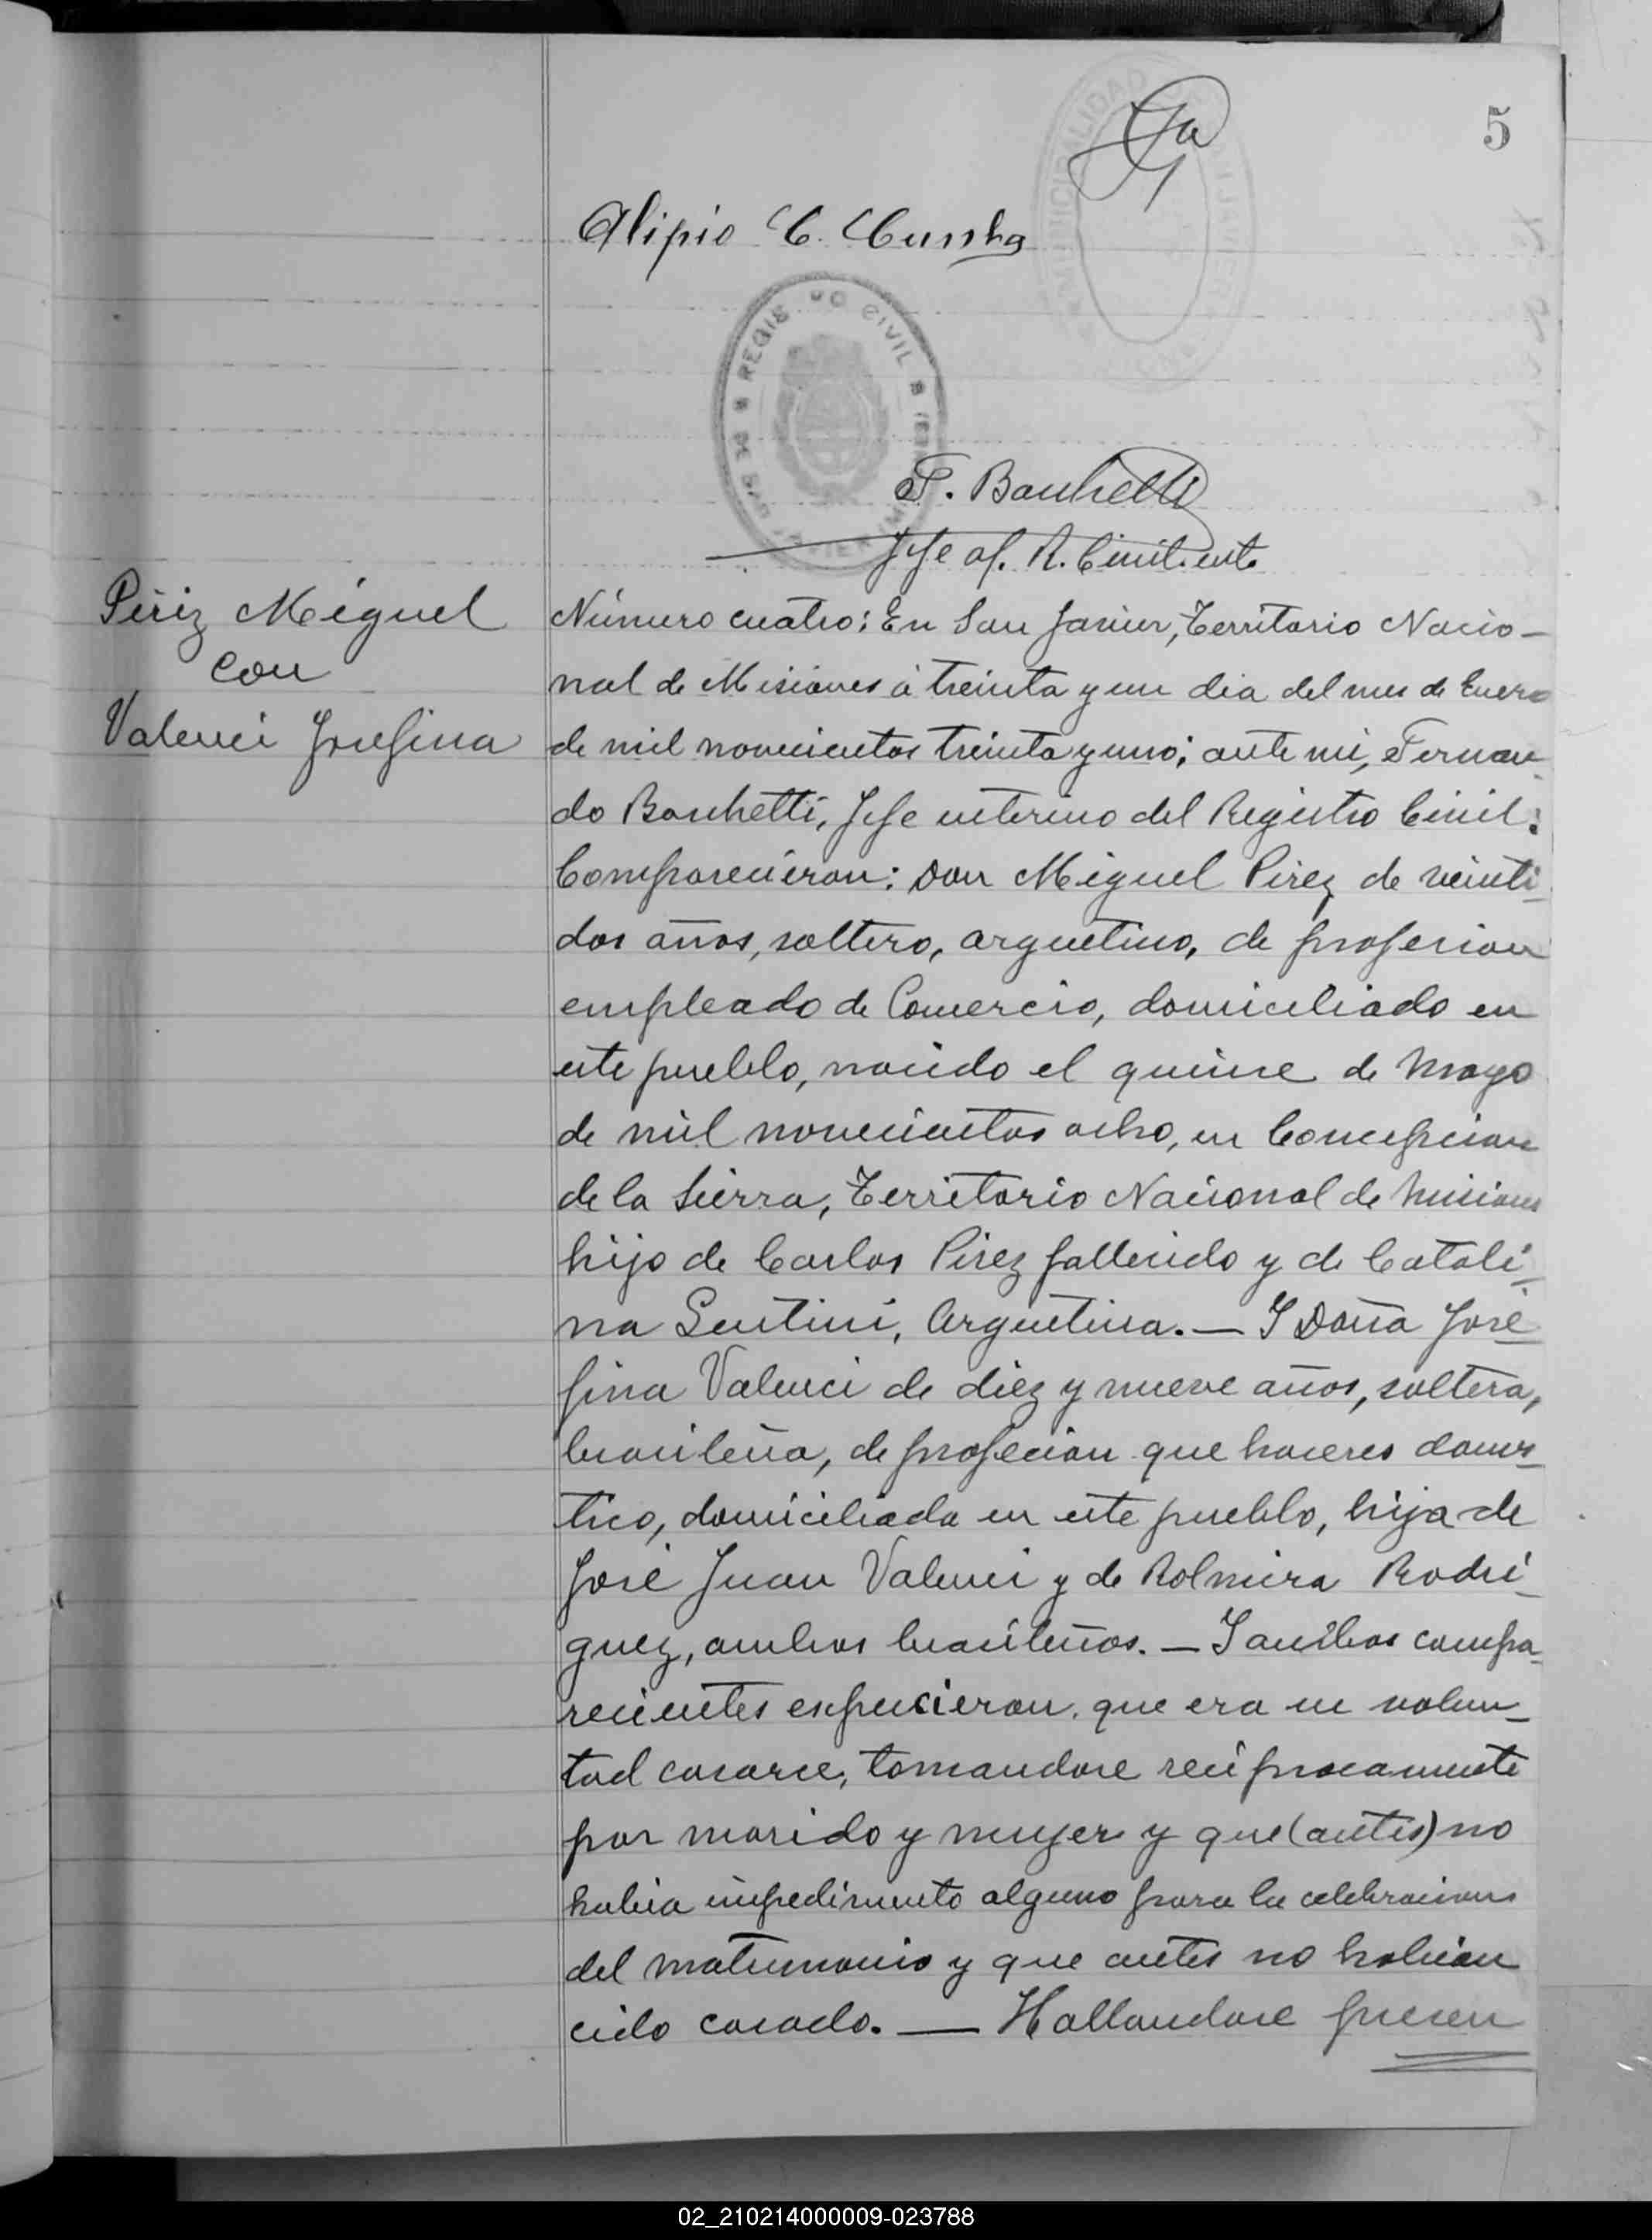 5
Alipio C. Cunha
REGISTRO CIVIL
F. Banchetti
Jefe of. R. Civil. inte
Piriz Miguel
con
Valenci Josefina
Número cuatro: En San Javier, Territorio Nacio-
nal de Misiones á treinta y un dia del mes de Enero
de mil novecientos treinta y uno; ante mi, Fernan-
do Banchetti, Jefe interino del Registro Civil:
Comparecieron: Don Miguel Pirez de veinti-
dos años, soltero, argentino, de profesion
empleado de Comercio, domiciliado en
este pueblo, nacido el quince de Mayo
de mil novecientos ocho, en Concepcion
de la Sierra, Territorio Nacional de Misiones
hijo de Carlos Pirez fallecido y de Catali-
na Sentini, Argentina. — I Doña José
fina Valenci de diez y nueve años, soltera,
brasileña, de profecion que haceres domes-
tico, domiciliada en este pueblo, hija de
José Juan Valenci y de Rolmira Rodri-
guez, ambos brasileños. — I ambos compa-
recientes espucieron que era su volun-
tad casarce, tomandose reciprocamente
por marido y mujer y que (antes) no
habia impedimento alguno para la celebracion
del matrimonio y que antes no habian
cido casado. — Hallandose presen
02_210214000009-023788